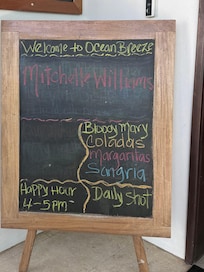 Welcome to Ocean Breeze
Mitchelle Williams
Bloody Mary
Coladas
Margaritas
Sangria
Happy Hour
4-5pm
Daily Shot